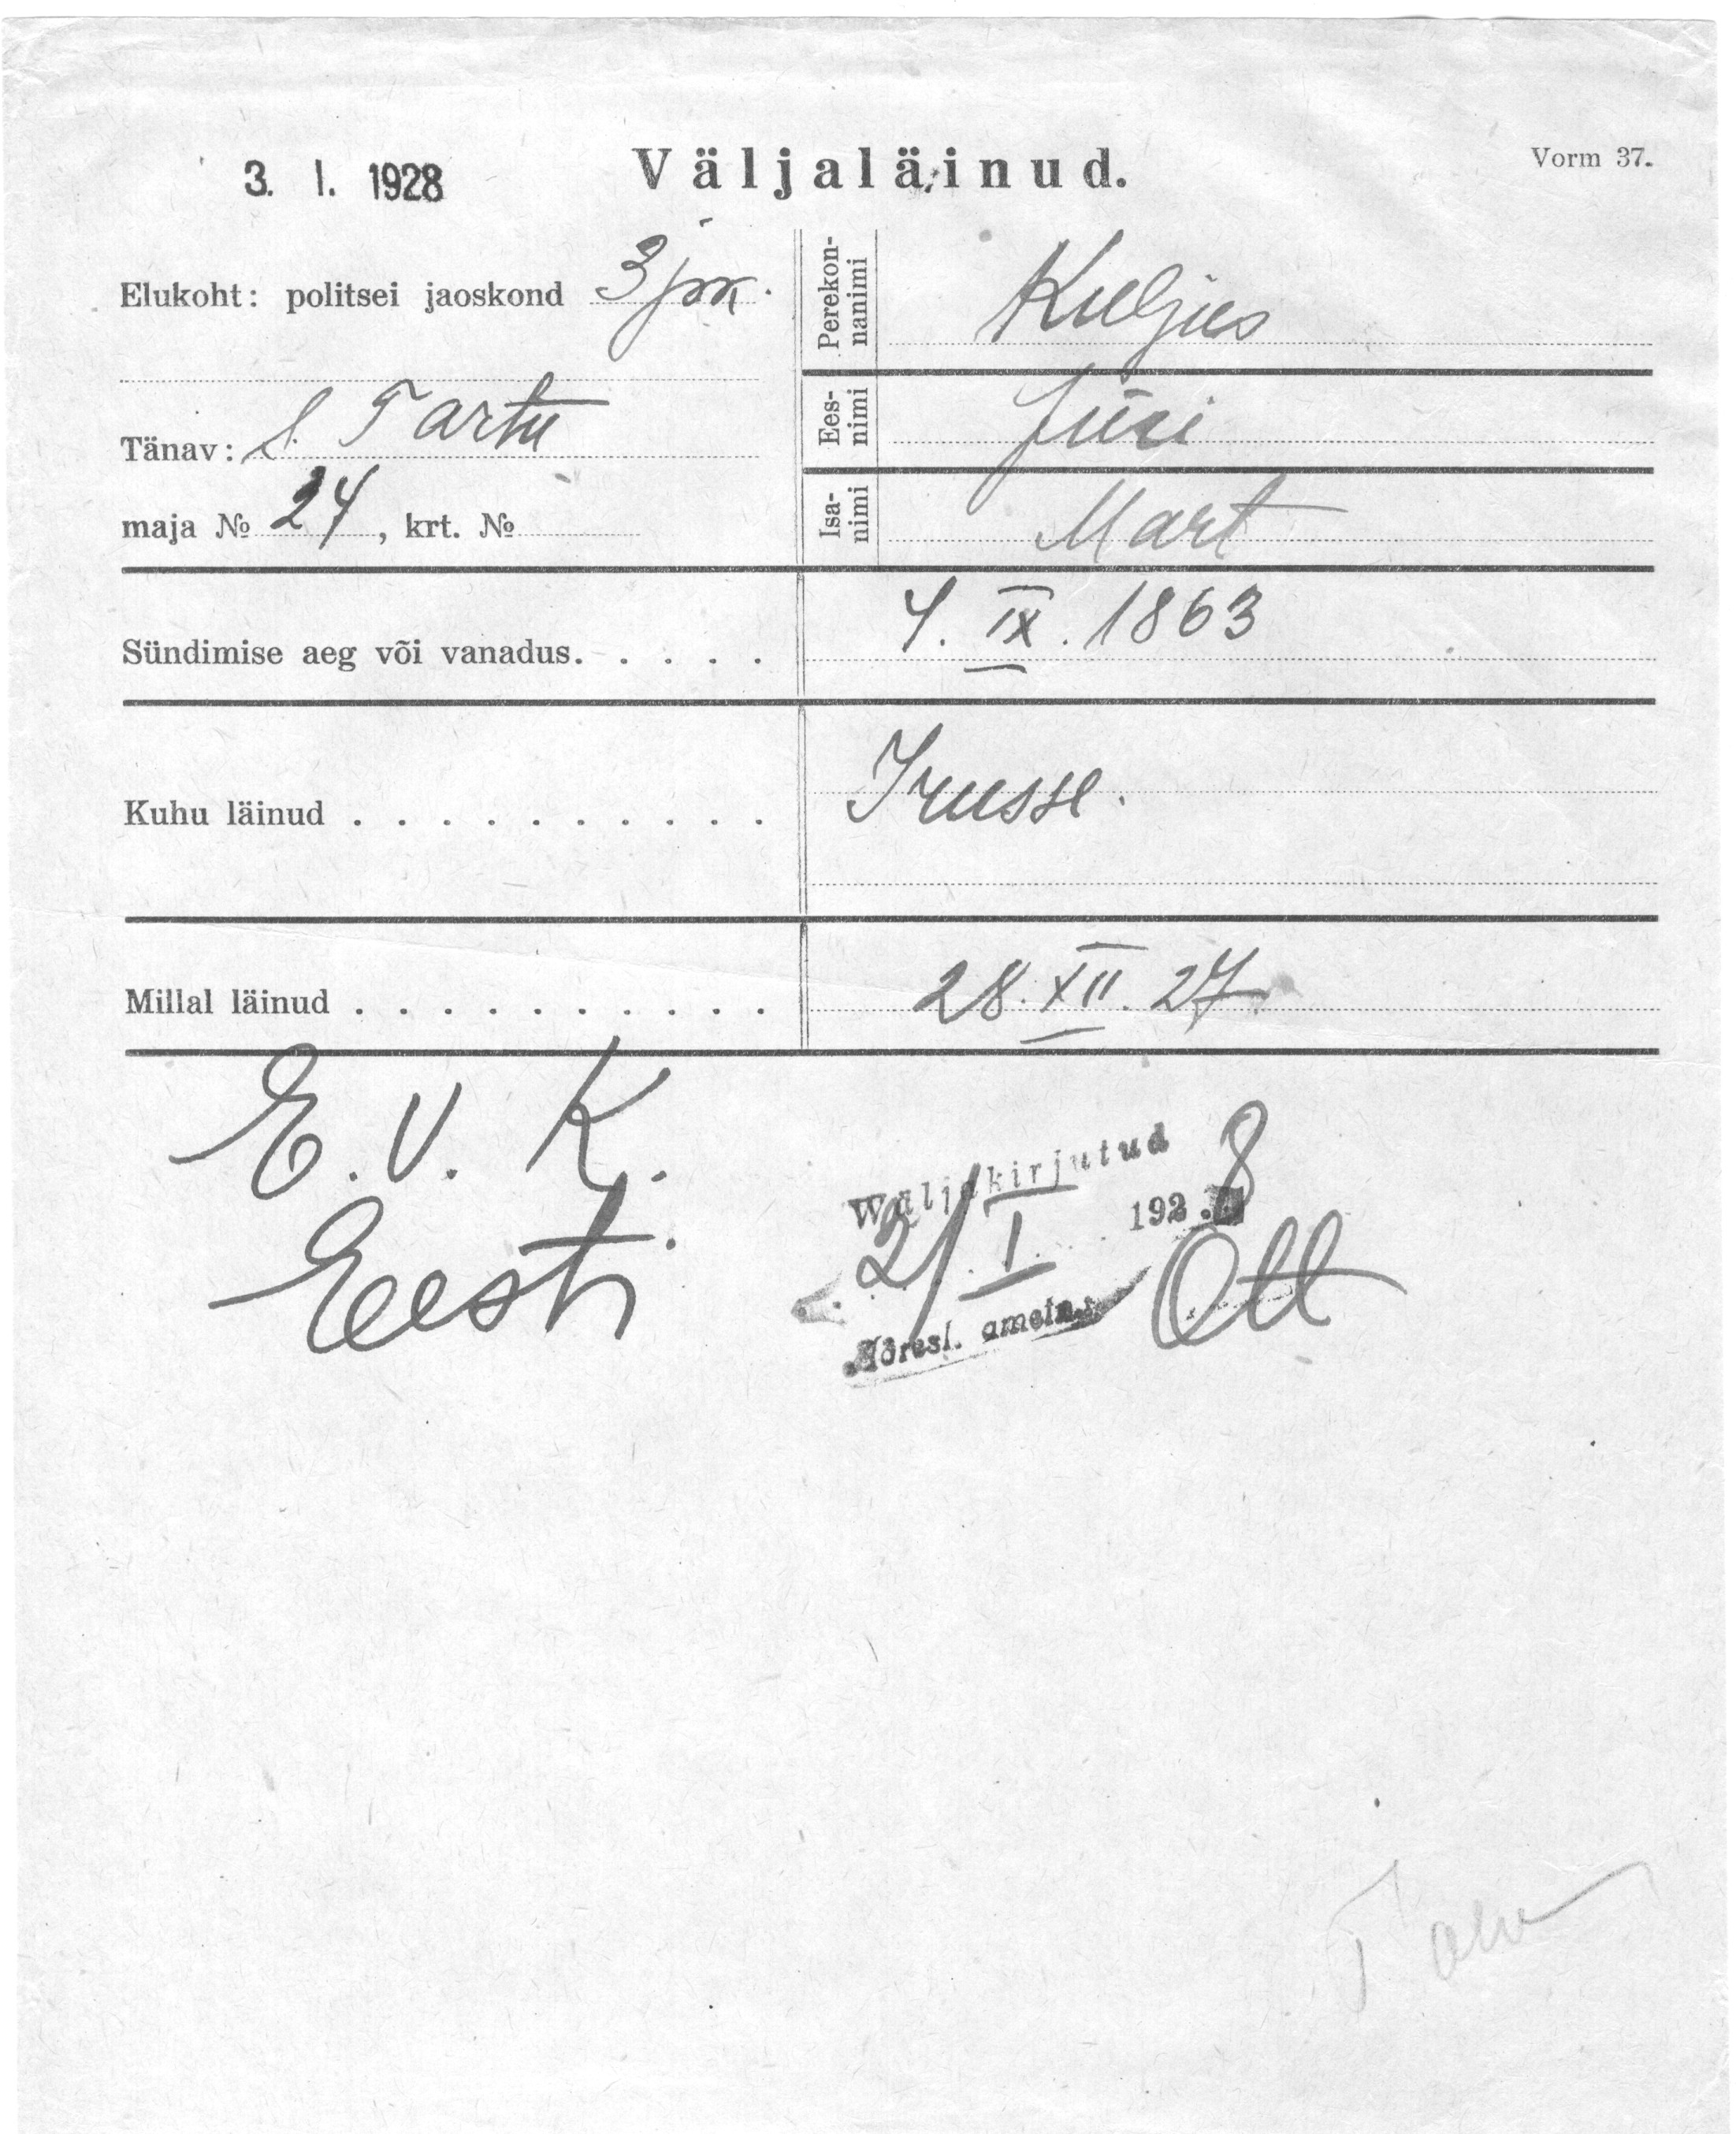 3. I. 1928
Väljaläinud.
Vorm 37.
Elukoht: politsei jaoskond 3 jsk.
Tänav: S. Tartu
maja № 24, krt. №
Perekon-
nanimi
Kuljus
Ees-
nimi
Jüri
Isa-
nimi
Mart
Sündimise aeg või vanadus. . . . .
4. IX. 1863
Kuhu läinud . . . . . . . . . .
Irusse.
Millal läinud . . . . . . . . . .
28. XII. 27
E. V. K.
Eesti
Wäljakirjutud
2/I 1928
Ott